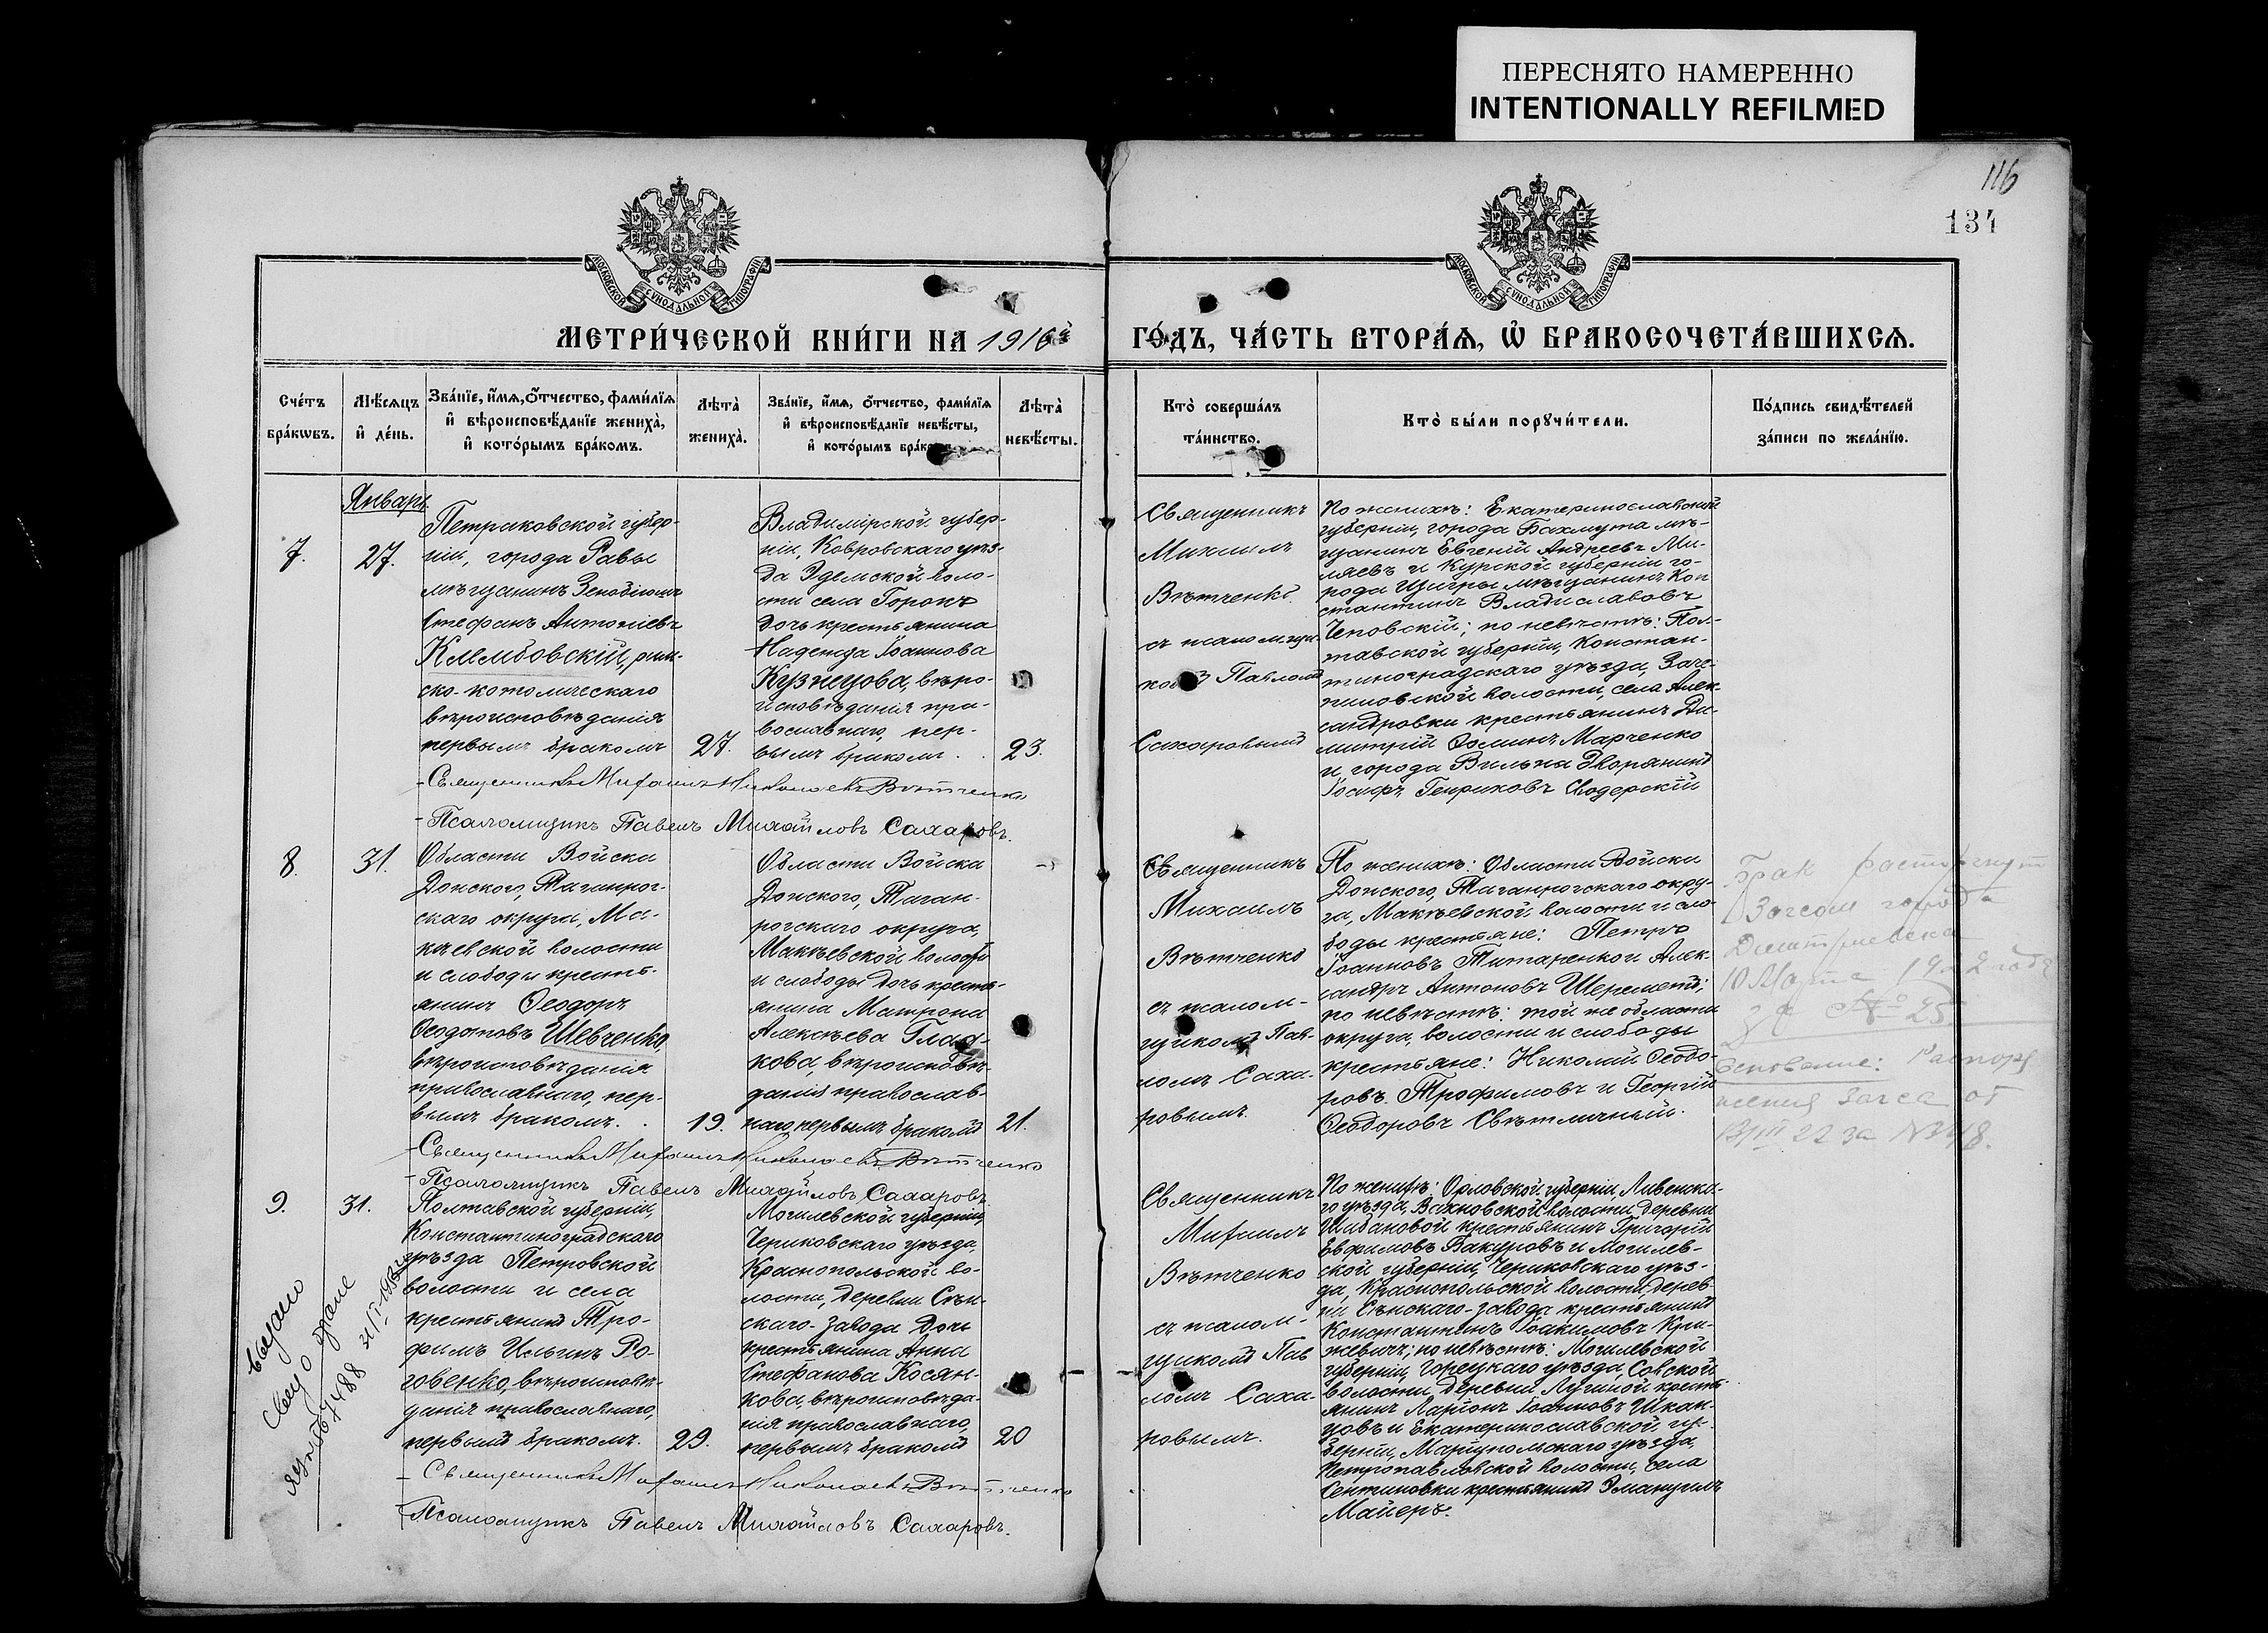 ПЕРЕСНЯТО НАМЕРЕННО
INTENTIONALLY REFILMED
116
134
МОСКОВСКОЙ СУНОДАЛЬНОЙ ТИПОГРАФІИ
МОСКОВСКОЙ СУНОДАЛЬНОЙ ТИПОГРАФІИ
МЕТРИ́ЧЕСКОЙ КНИ́ГИ НА 1916й
ГО́ДЪ, ЧА́СТЬ ВТОРА́Я, Ѡ҆ БРАКОСОЧЕТА́ВШИХСѦ.
Сче́тъ
бра́кѡвъ.
Мѣ́сѧцъ
и҆ де́нь.
Зва́нїе, и҆́мѧ, ѻ҆́тчество, фами́лїѧ
и҆ вѣроисповѣ́данїе жениха̀,
и҆ кото́рымъ бра́комъ.
Лѣта̀
жениха̀.
Зва́нїе, и҆́мѧ, ѻ҆́тчество, фами́лїѧ
и҆ вѣроисповѣ́данїе невѣ́сты,
и҆ кото́рымъ бра́комъ.
Лѣта̀
невѣ́сты.
Кто̀ соверша́лъ
та́инство.
Кто̀ бы́ли порꙋчи́тели.
По́дпись свидѣ́телей
за́писи по жела́нїю.
Январь
7.
27.
Петраковской губер-
ніи, города Равы
мѣщанинъ Зенобіюшъ
Стефанъ Антоніевъ
Клембовскій, рим-
ско-католическаго
вѣроисповѣданія
первымъ бракомъ
27.
Владимірской губер-
ніи, Ковровскаго уѣз-
да Эдемской воло-
сти села Горокъ
дочь крестьянина
Надежда Іоаннова
Кузнецова, вѣро-
исповѣданія пра-
вославнаго, пер-
вымъ бракомъ.
23.
Священникъ
Михаилъ
Вѣтченко
съ псаломщи-
комъ Павломъ
Сахаровымъ
По женихѣ: Екатеринославской
губерніи, города Бахмута мѣ-
щанинъ Евгеній Андреевъ Ми-
ляевъ и Курской губерніи го-
рода Щигры мѣщанинъ Кон
стантинъ Владиславовъ
Чеповскій; по невѣстѣ: Пол-
тавской губерніи, Констан-
тиноградскаго уѣзда, Заче-
пиловской волости, села Алек-
сандровки крестьянинъ Ди-
митрій Ѳоминъ Марченко
и города Вильна дворянинъ
Іосифъ Генриховъ Сводерскій
- Священникъ Михаилъ Николаевъ Вѣтченко
- Псаломщикъ Павелъ Михайловъ Сахаровъ.
8.
31.
Области Войска
Донского, Таганрог-
скаго округа, Ма-
кѣевской волости
и слободы кресть-
янинъ Ѳеодоръ
Ѳеодотовъ Шевченко,
вѣроисповѣданія
православнаго, пер-
вымъ бракомъ.
19.
Области Войска
Донского, Таган-
рогскаго округа,
Макѣевской волости
и слободы дочь кресть-
янина Матрона
Алексѣева Глад-
кова, вѣроисповѣ-
данія православ-
наго, первымъ бракомъ
21.
Священникъ
Михаилъ
Вѣтченко
съ псалом-
щикомъ Пав-
ломъ Саха-
ровымъ.
По женихѣ: Области Войска
Донского, Таганрогскаго окру-
га, Макѣевской волости и сло-
боды крестьяне: Петръ
Іоанновъ Титаренко и Алек-
сандръ Антоновъ Шереметъ;
по невѣстѣ: той же области
округа, волости и слободы
крестьяне: Николай Ѳеодо-
ровъ Трофимовъ и Георгій
Ѳеодоровъ Свѣтличный.
Брак расторгнут
Загсом города
Дмитриевска
10 Марта 1922 года
за № 25
Основание: Распоря
жения Загса от
22 за №
- Священникъ Михаилъ Николаевъ Вѣтченко
- Псаломщикъ Павелъ Михайловъ Сахаровъ
9.
31.
Полтавской губерніи,
Константиноградскаго
уѣзда Петровской
волости и села
крестьянинъ Тро-
фимъ Ильинъ Ро-
говенко, вѣроисповѣ-
данія православнаго,
первымъ бракомъ.
29.
Могилевской губерніи,
Чериковскаго уѣзда,
Краснопольской во-
лости, деревни Сѣн-
скаго-завода дочь
крестьянина Анна
Стефанова Косян-
кова, вѣроисповѣда-
нія православнаго,
первымъ бракомъ
20
Священникъ
Михаилъ
Вѣтченко
съ псалом-
щикомъ Пав
ломъ Саха-
ровымъ.
По женихѣ: Орловской губерніи, Ливенска-
го уѣзда, Вахновской волости деревни
Шибановой крестьянинъ Григорій
Евфимовъ Вакуровъ и Могилев-
ской губерніи, Чериковскаго уѣз-
да, Краснопольской волости, дерев-
ни Сѣнскаго-завода крестьянинъ
Константинъ Іоакимовъ Кри-
жевичъ; по невѣстѣ: Могилевской
губерніи, Горецкаго уѣзда, Совской
волости деревни Лучиной кресть
янинъ Ларіонъ Іоанновъ Шкан-
цовъ и Екатеринославской гу-
берніи, Маріупольскаго уѣзда,
Петропавловской волости, села
Сентиновки крестьянинъ Эмануилъ
Майеръ.
Выдано
Свид о браке
- Священникъ Михаилъ Николаевъ Вѣтченко
- Псаломщикъ Павелъ Михайловъ Сахаровъ.